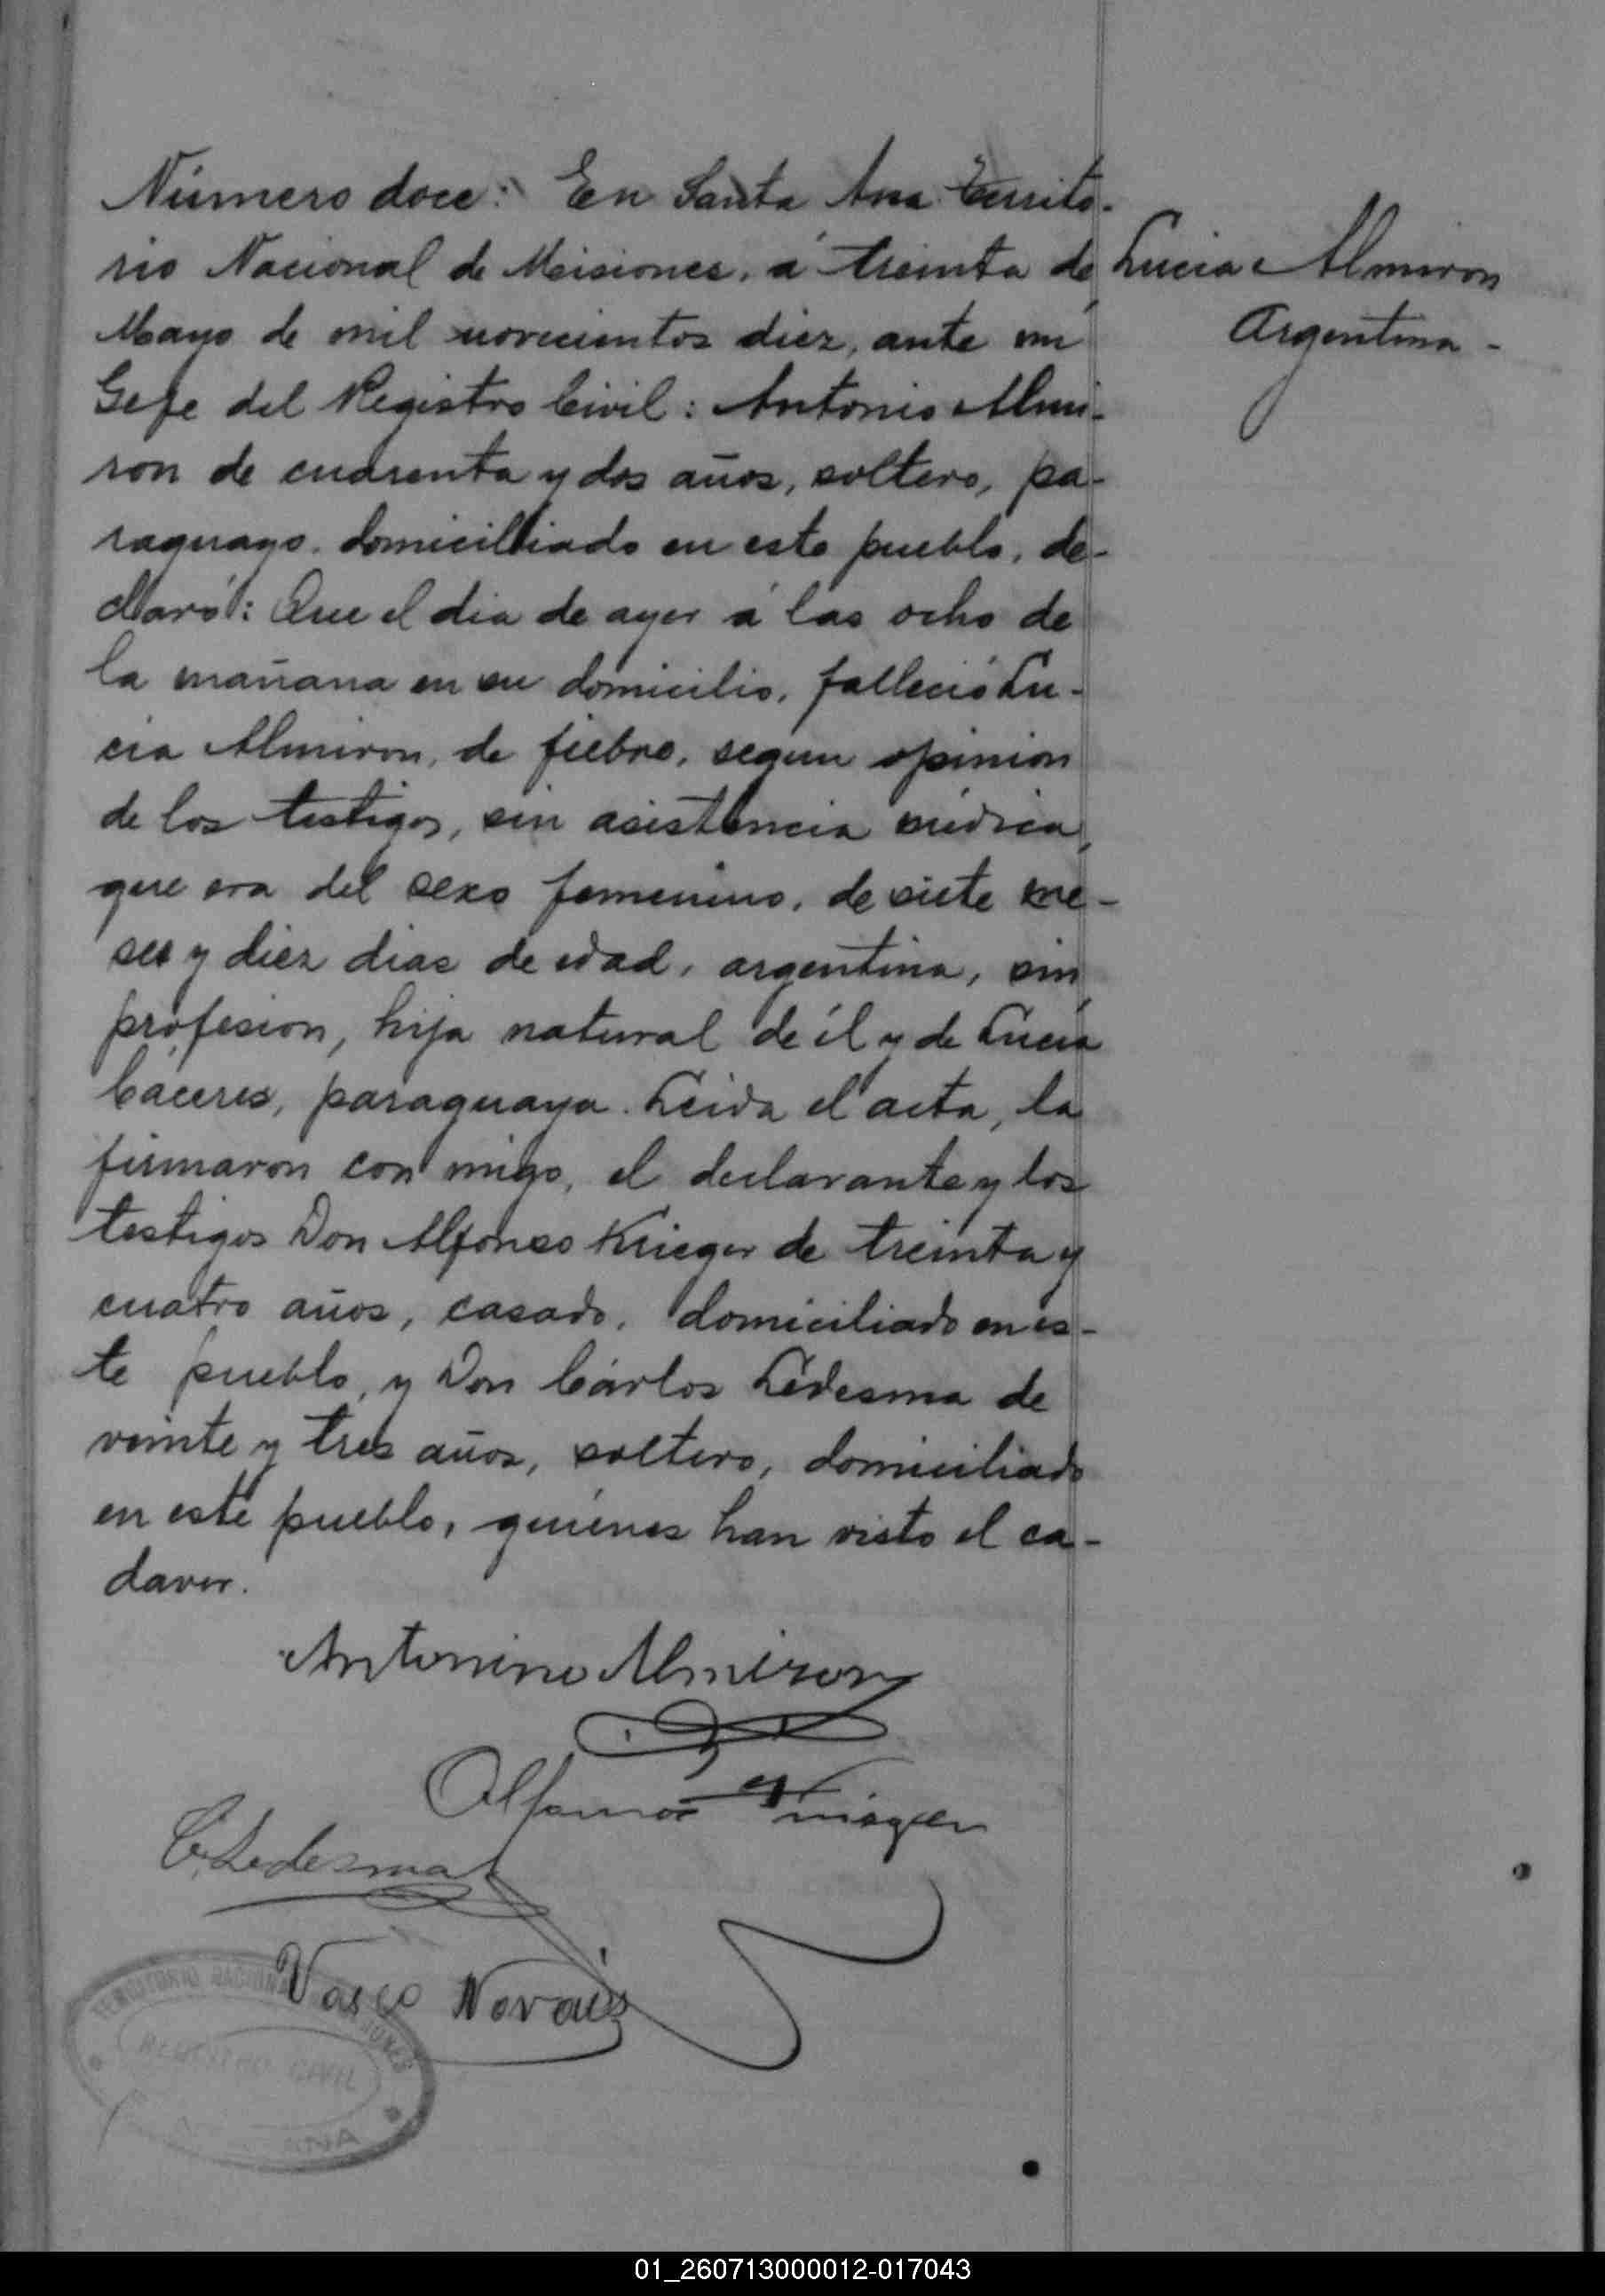 Número doce: En Santa Ana Territo-
rio Nacional de Misiones, á treinta de
Mayo de mil novecientos diez, ante mi
Gefe del Registro Civil: Antonio Almi-
ron de cuarenta y dos años, soltero, pa-
raguayo, domicilliado en este pueblo, de-
claró: Que el dia de ayer á las ocho de
la mañana en su domicilio, falleció Lu-
cia Almiron, de fiebre, segun opinion
de los testigos, sin asistencia médica,
que era del sexo femenino, de siete me-
ses y diez dias de edad, argentina, sin
profesion, hija natural de él y de Lucia
Cáceres, paraguaya. Leida el acta, la
firmaron con migo, el declarante y los
testigos Don Alfonso Krieger de treinta y
cuatro años, casado, domiciliado en es-
te pueblo, y Don Cárlos Ledesma de
veinte y tres años, soltero, domiciliado
en este pueblo, quiénes han visto el ca-
daver.
Lucia Almiron
Argentina -
Antonino Almiron
Alfonso Krieger
C. Ledesma
Vasco Novais
TERRITORIO NACIONAL MISIONES
REGISTRO CIVIL
ANA
01_260713000012-017043